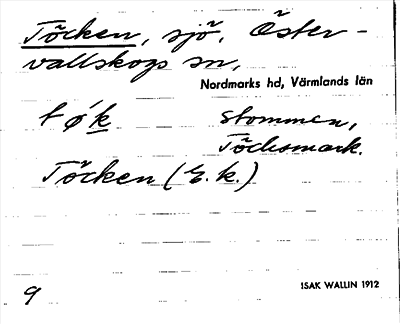 Töcken, sjö, Öster-
vallskogs sn,
Nordmarks hd, Värmlands län
t ǿk stommen,
Töcksmark.
Töcken (G. k.)
9
ISAK WALLIN 1912